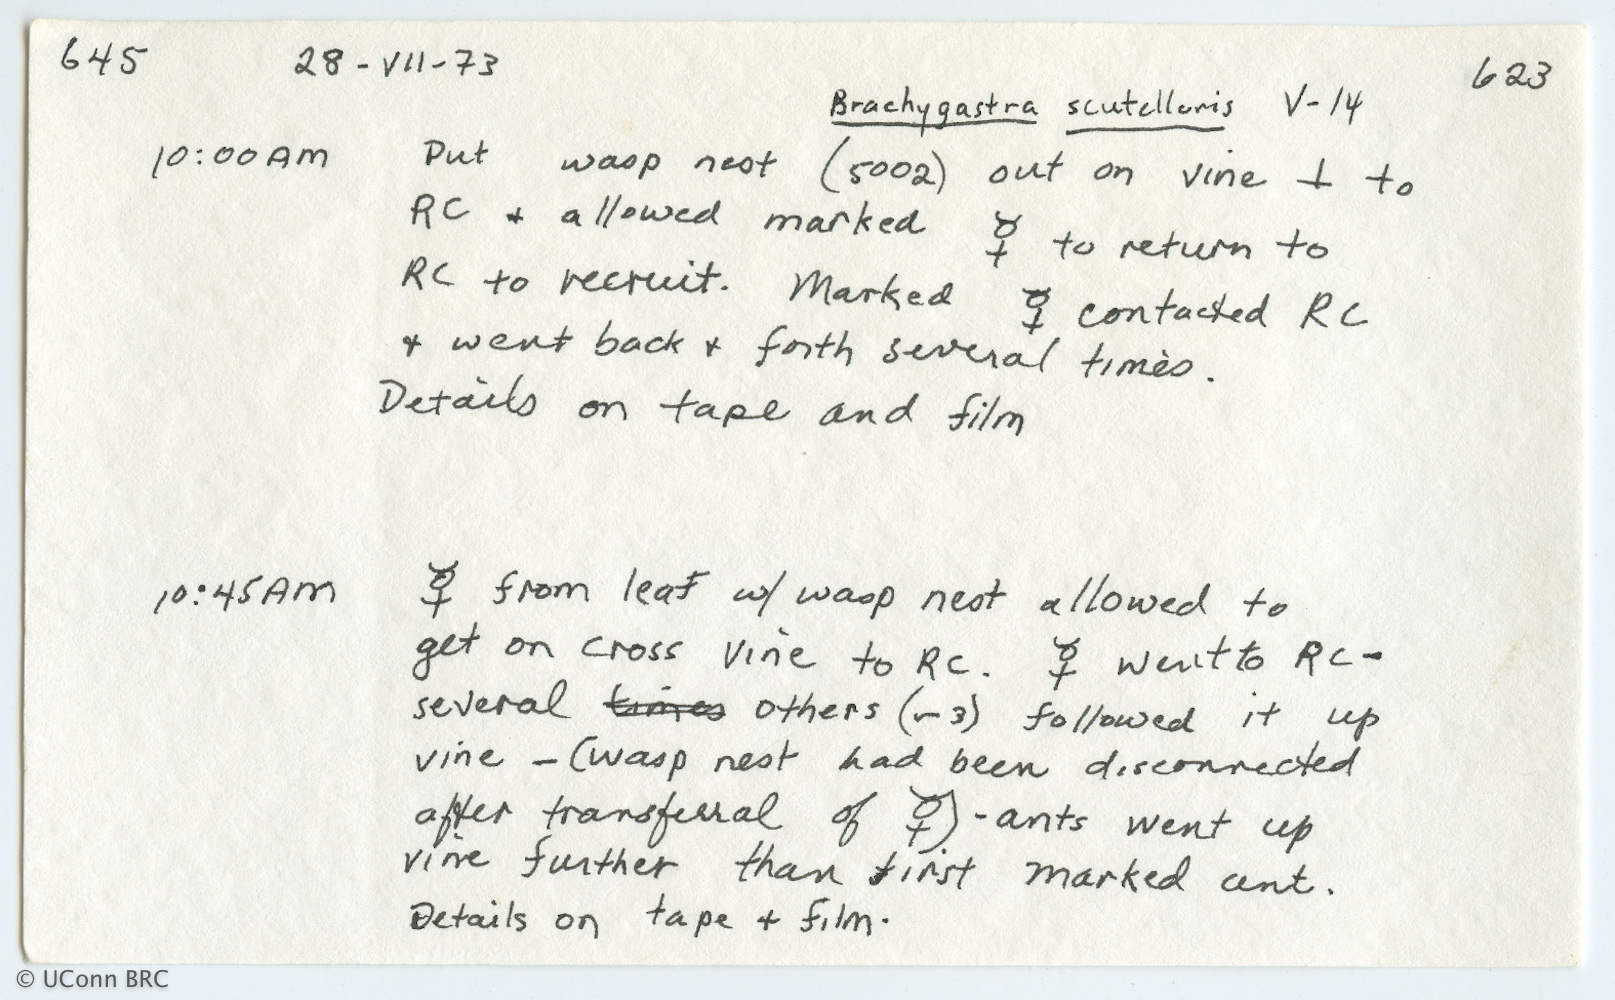 645 28-VII-73 623
Brachygastra scutelluris V-14
10:00AM Put wasp nest (5002) out on vine ⊥ to
RC + allowed marked ☿ to return to
RC to recruit. Marked ☿ contacted RC
+ went back + forth several times.
Details on tape and film
10:45AM ☿ from leaf w/ wasp nest allowed to
get on cross vine to RC. ☿ went to RC-
several times others (~3) followed it up
vine - (wasp nest had been disconnected
after transferral of ☿) - ants went up
vine further than first marked ant.
Details on tape + film.
© UConn BRC